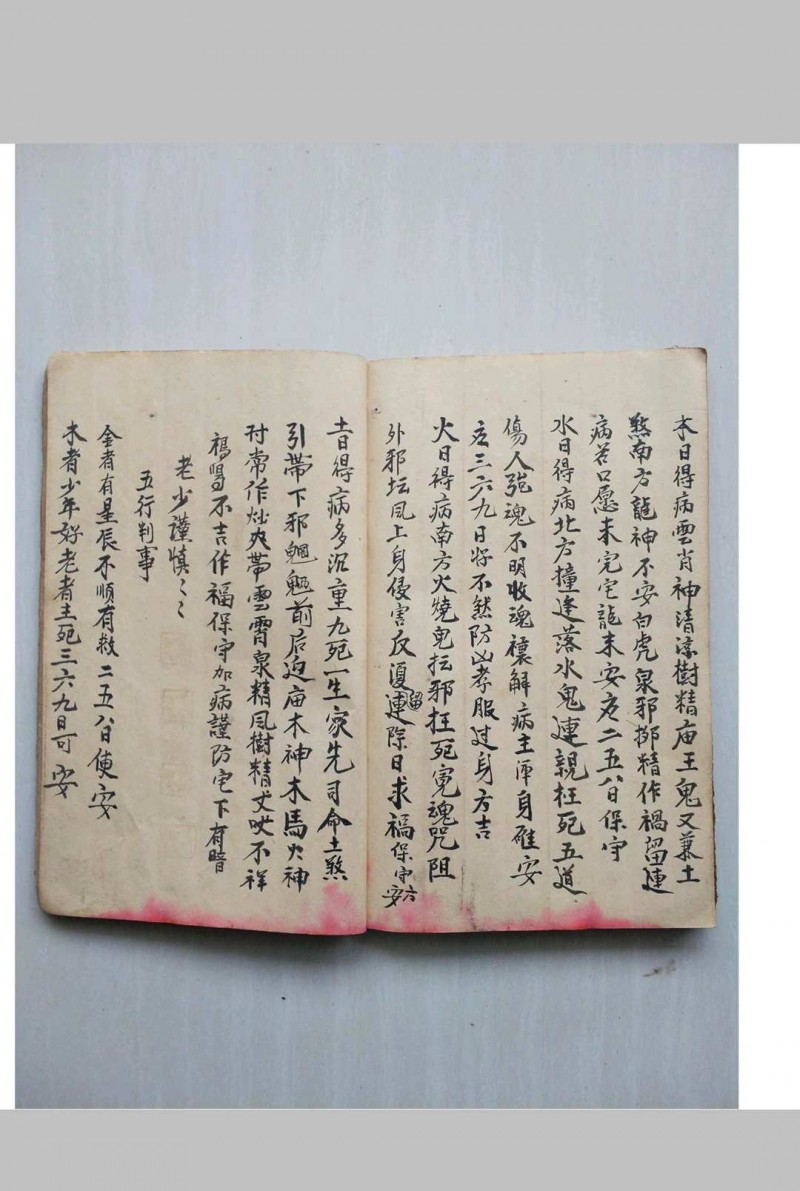 木日得病雲肖神清涼樹精庙王鬼又兼土
煞南方龍神不安白虎泉邪挪精作禍留連
病若口愿未完宅龍未安卮二五八日保守
水日得病北方撞逢落水鬼連親枉死五道
傷人強魂不明收魂禳解病主渾身难安
卮三六九日好不然防凶孝服过身方吉
火日得病南方火燒鬼坛邪枉死冤魂咒阻
外邪坛風上身侵害反復留連除日求福保守六安
土日得病多沉重九死一生家先司命土煞
引带下邪魍魎前后迎庙木神木馬火神
付常作炒灾带雲霄泉精風樹精丈哎不祥
福喝不吉作福保守加病謹防宅下有暗
老少謹慎〻〻
五行判事
金者有星辰不順有救二五八日便安
木者少年好老者主死三六九日可安